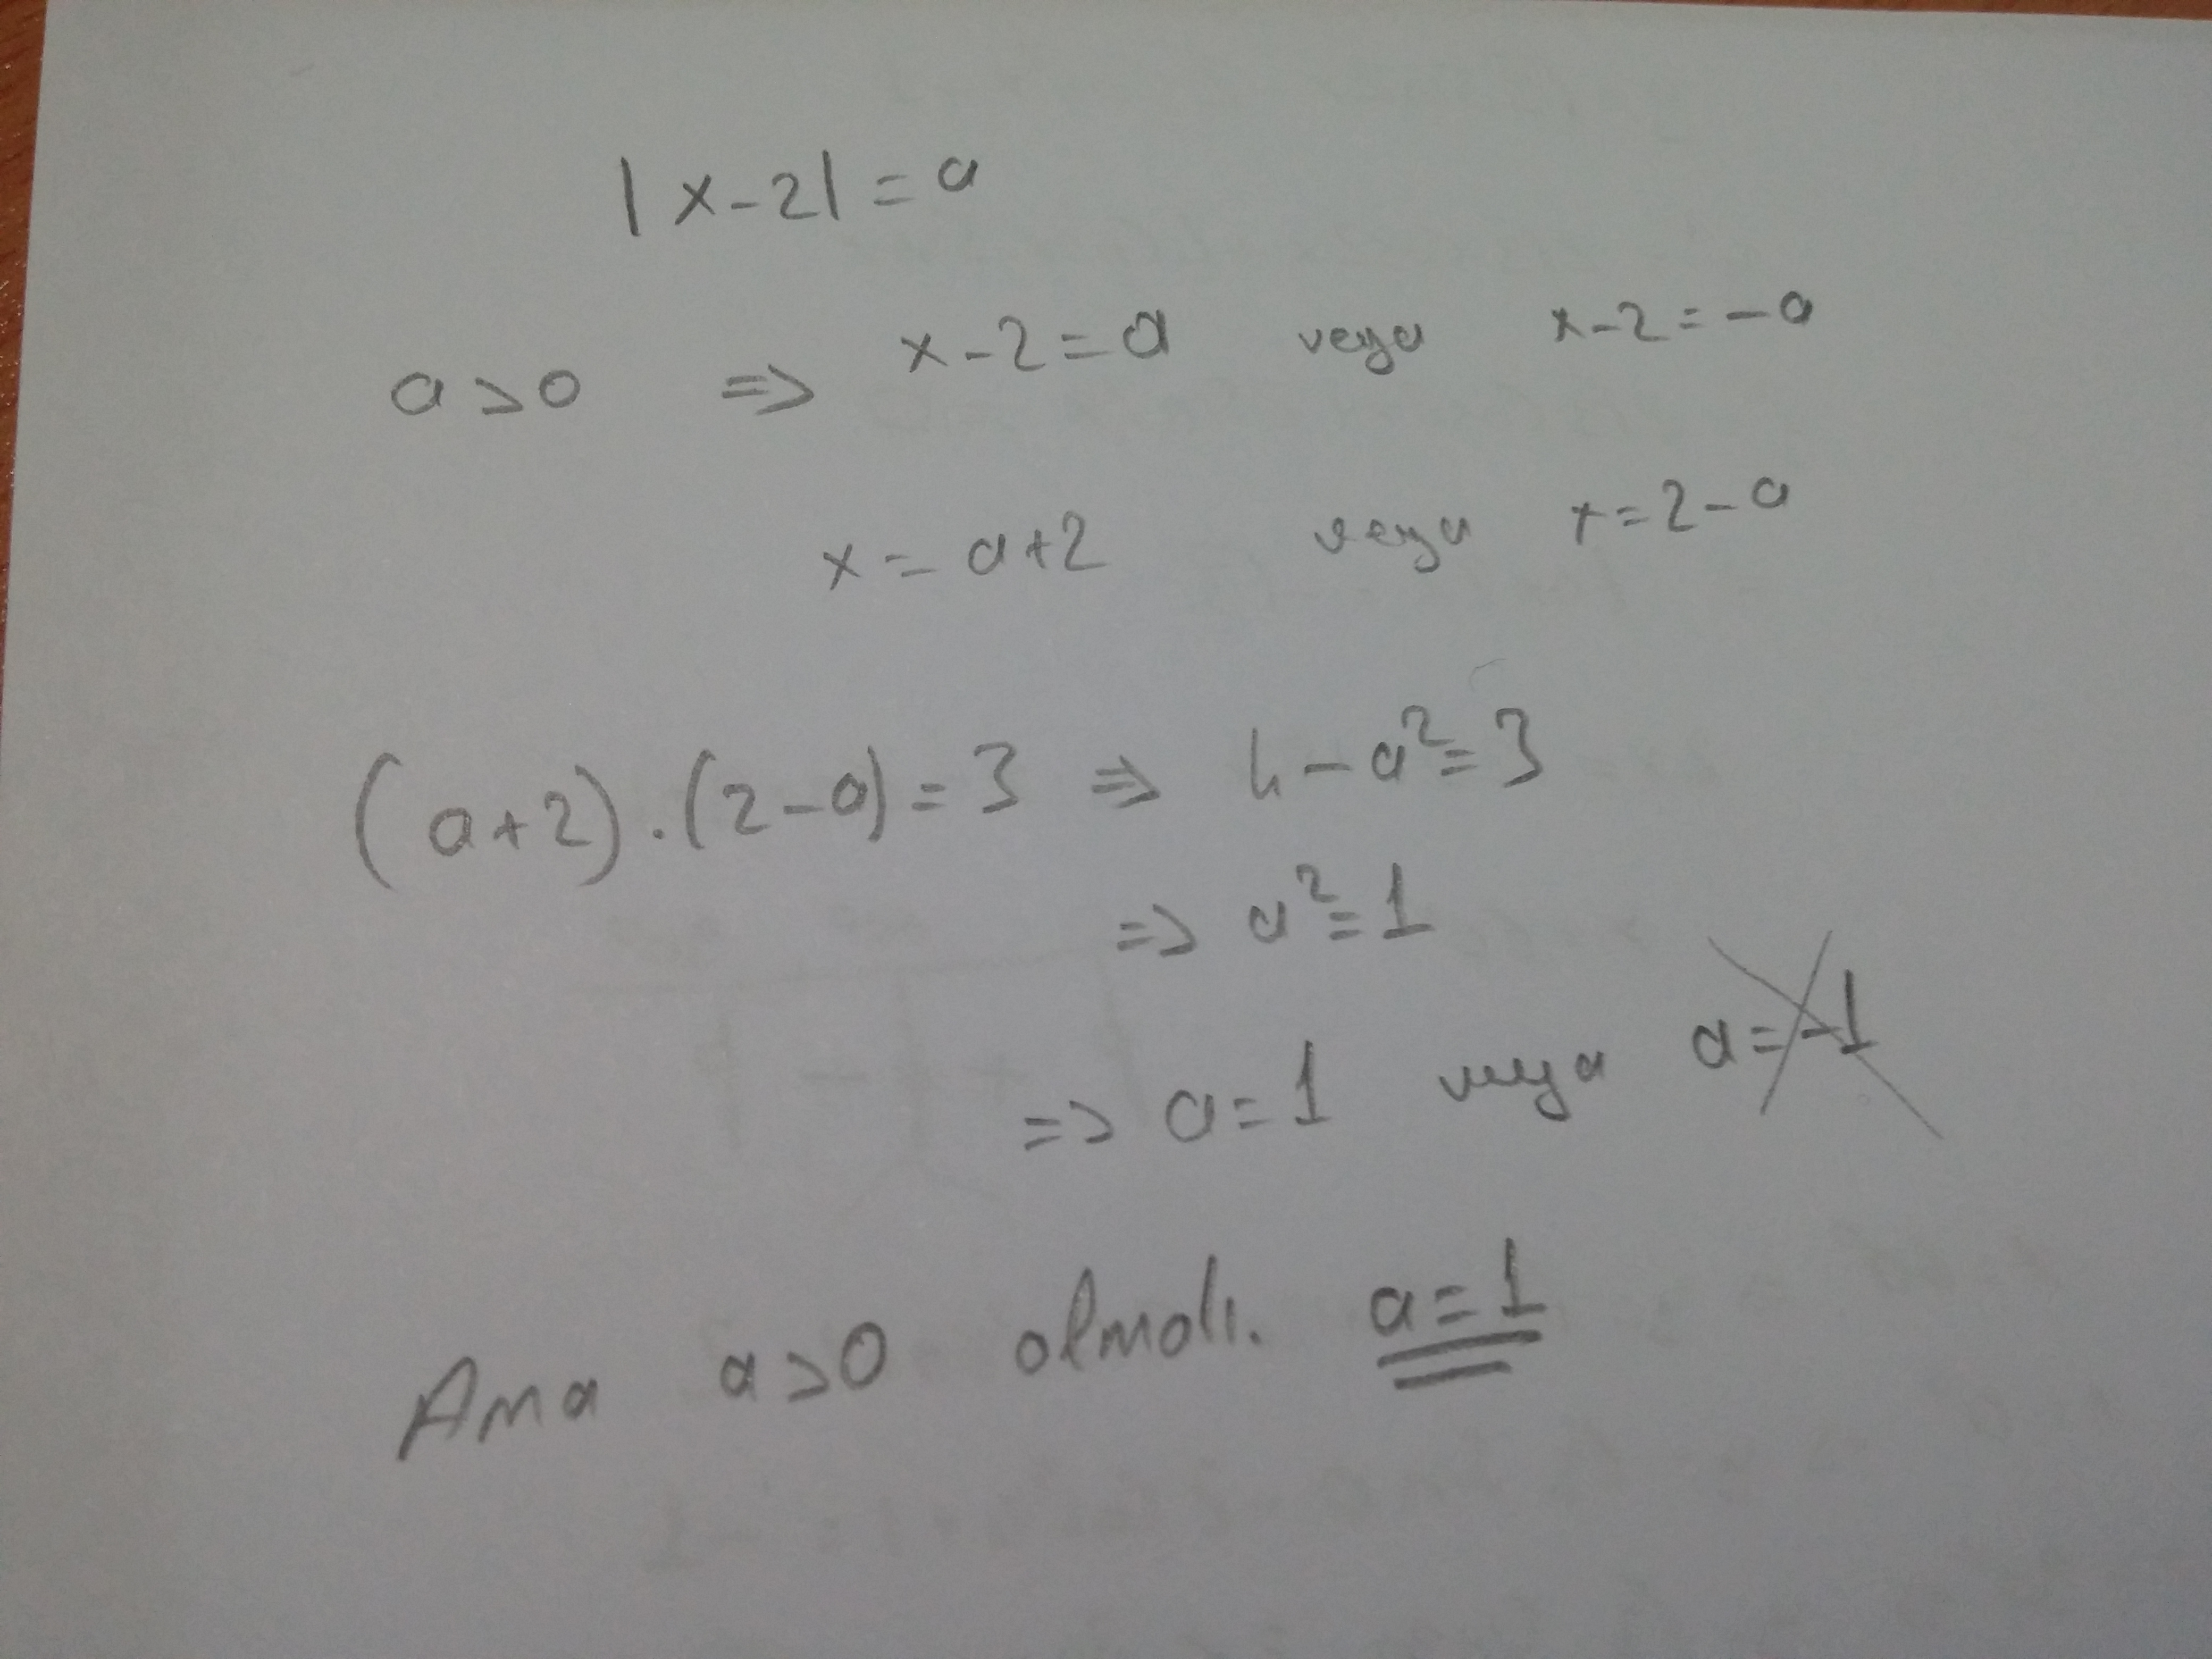 |x-2| = a
a>0 => x-2=a veya x-2=-a
x=a+2 veya x=2-a
(a+2).(2-a)=3 => 4-a²=3
=> a²=1
=> a=1 veya a=-1
Ama a>0 olmalı. a=1